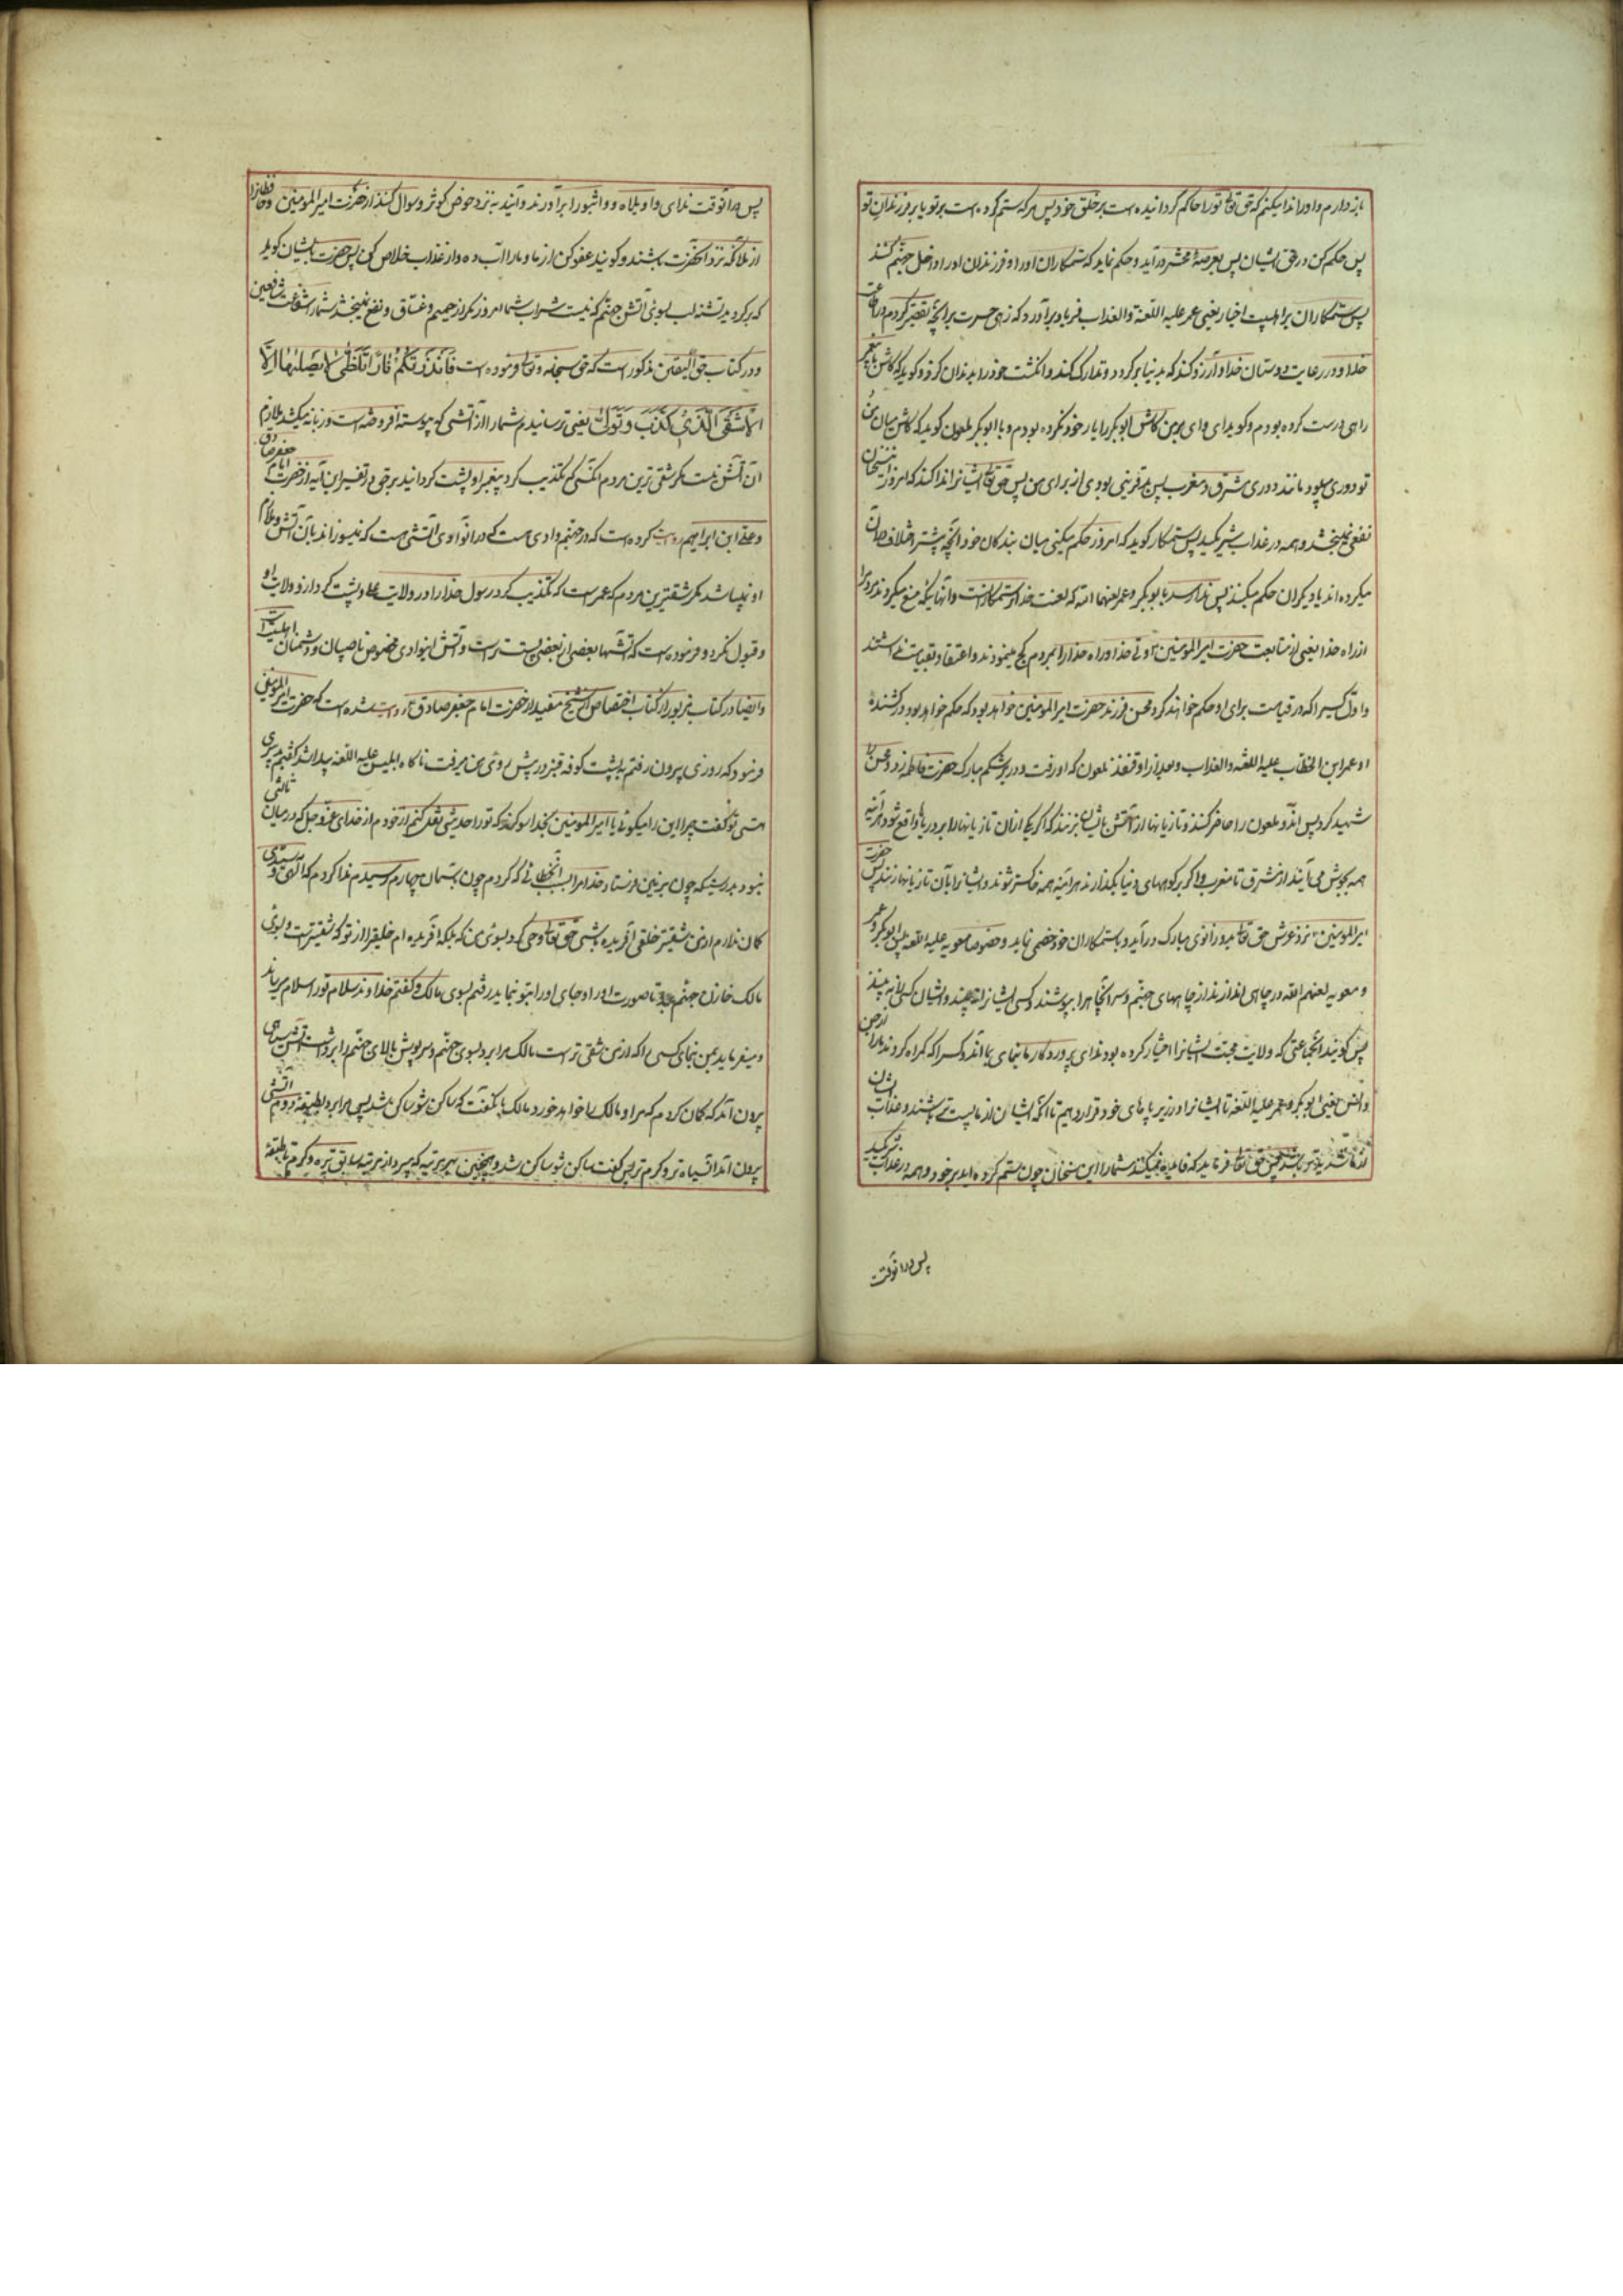 بازدارم و او را ندا میکنم که حق تعالی تو را حاکم گردانیده است بر خلق خود پس هر که ستم کرده است بر تو یا بر فرزندان تو
پس حکم کن در حق ایشان پس بعرصهٔ محشر درآید و حکم نماید که ستمکاران او را و فرزندان او را داخل جهنم کنند
پس ستمکاران بر اهلبیت اخیار یعنی عمر علیه اللعنة والعذاب فریاد برآورد که زهی حسرت بر آنچه تقصیر کردم در طاعت
خدا و در رعایت دوستان خدا و آرزو کند که بدنیا برگردد و تدارک کند و انگشت خود را بدندان گزد و گوید که کاش با پیغمبر
راهی درست کرده بودم و گوید ای وای بر من کاش ابوبکر را یار خود نکرده بودم و با ابوبکر ملعون گوید که کاش میان من و
تو دوری میبود مانند دوری مشرق و مغرب پس بد قرینی بودی از برای من پس حق تعالی ایشانرا ندا کند که امروز این سخنان
نفعی نمیبخشد و همه در عذاب شریکید پس ستمکار گوید که امروز حکم میکنی میان بندگان خود آنچه پیشتر اختلاف در آن
میکرده‌اند یا دیگران حکم میکنند پس ندا رسد بابوبکر و عمر لعنهما الله که لعنت خدا بر ستمکارانست و آنهائیکه منع میکردند مردم را
از راه خدا یعنی از متابعت حضرت امیرالمؤمنین ولی خدا و راه خدا را بمردم کج مینمودند و اعتقاد بقیامت نداشتند
و اول کسیرا که در قیامت برای او حکم خواهند کرد محسن فرزند حضرت امیرالمؤمنین خواهد بود که حکم خواهد بود در کشندهٔ
او عمر ابن الخطاب علیه اللعنه والعذاب و بعد از او قنفذ ملعون که او رفت و در بر شکم مبارک حضرت فاطمه زد و محسن را
شهید کرد پس آندو ملعون را حاضر کنند و تازیانها از آتش بایشان بزنند که اگر یکی از آن تازیانها را بر دریاها واقع شود هرآینه
همه بجوش می‌آیند از مشرق تا مغرب و اگر بر کوههای دنیا بگذارند هرآینه همه خاکستر شوند و ایشانرا بآن تازیانها زنند پس حضرت
امیرالمؤمنین نزد عرش حق تعالی بدو زانوی مبارک درآید و با ستمکاران خود خصمی نماید و خصوصا معویه علیه اللعنه پس ابوبکر و عمر
و معویه لعنهم الله در چاهی اندازند از چاههای جهنم و سر آنچاه را بپوشند و کسی ایشانرا نه بیند و ایشان کسی را نه بینند
پس گویند آنجماعتی که ولایت و محبت ایشانرا اختیار کرده بودند ای پروردگار ما بنمای بما آندو کس را که گمراه کردند ما را از جن
و انس یعنی ابوبکر و عمر علیه اللعنه تا ایشانرا در زیر پاهای خود قرار دهیم تا آنکه ایشان از ما پست‌تر باشند و عذاب ایشان
از ما شدیدتر باشد پس حق تعالی فرماید که فایده نمیکند شما را این سخنان چون ستم کرده‌اید بر خود و همه در عذاب شریکید
پس در آنوقت
پس در آنوقت ندای واویلاه و واثبورا برآورند و آیند به نزد حوض کوثر و سوال کنند از حضرت امیرالمؤمنین و حافظان را
از ملائکه نزد آنحضرت باشند و گویند عفو کن از ما و ما را آب ده و از عذاب خلاص کن پس حضرت بایشان گوید
که برگردید تشنه لب بسوی آتش جهنم که نیست شراب شما امروز مگر از حمیم و غساق و نفع نمیبخشد شما را شفاعت شافعین
و در کتاب حق الیقین مذکور است که حق سبحانه و تعالی فرموده است فَاَنْذَرْتُکُمْ نَاراً تَلَظَّی لَا یَصْلٰیهَا اِلَّا
الْاَشْقَی الَّذِی کَذَّبَ وَ تَوَلَّی یعنی ترسانیدم شما را از آتشی که پیوسته افروخته است و زبانه میکشد ملازم
آن آتش نیست مگر شقی ترین مردم آنکسی که تکذیب کرد پیغمبر او پشت گردانید بر حق در تفسیر این آیه از حضرت امام جعفر صادق
و علی ابن ابراهیم روایت کرده است که در جهنم وادی هست که در آنوادی آتشی هست که نمیسوزاند بآن آتش و ملازم
او نمیباشد مگر شقیترین مردم که عمر است که تکذیب کرد رسول خدا را در ولایت علی و پشت گردانید از ولایت او
و قبول نکرد و فرموده است که آتشها بعضی از بعضی پست‌تر است و آتش اینوادی مخصوص ناصبیان و دشمنان اهلبیت است
و ایضا در کتاب مزبور از کتاب اختصاص از شیخ مفید از حضرت امام جعفر صادق روایت شده است که حضرت امیرالمؤمنین
فرمود که روزی بیرون رفتم به پشت کوفه قنبر در پیش روی من میرفت ناگاه ابلیس علیه اللعنه پیدا شد گفتم بد پیری
هستی تو گفت چرا این را میگوئی یا امیرالمؤمنین بخدا سوگند که تو را حدیثی نقل کنم از خودم از خدای عزوجل که در میان ثالثی
نبود بدرستیکه چون بر زمین فرستاد خدا مرا بسبب آنخطائی که کردم چون بآسمان چهارم رسیدم ندا کردم که الهی و سیدی
گمان ندارم از من شقیتر خلقی آفریده باشی حق تعالی وحی کرد بسوی من که بلکه آفریده‌ام خلقیرا از تو که شقیتر است برو بسوی
مالک خازن جهنم تا صورت او را و جای او را بتو نماید رفتم بسوی مالک و گفتم خداوند سلام تو را سلام میرساند
و میفرماید بمن بنمای کسی را که از من شقی‌تر است مالک مرا برد بسوی جهنم و سرپوش بالای جهنم را برداشت آتش سیاهی
بیرون آمد که گمان کردم که مرا و مالک را خواهد خورد مالک بآن گفت که ساکن شو ساکن شد پس مرا برد بطبقهٔ دوم آتشی
بیرون آمد از آن سیاه‌تر و گرم‌تر پس گفت ساکن شو ساکن شد و همچنین بهر مرتبه که میبرد از مرتبه سابق تیره و گرمتر تا طبقهٔ